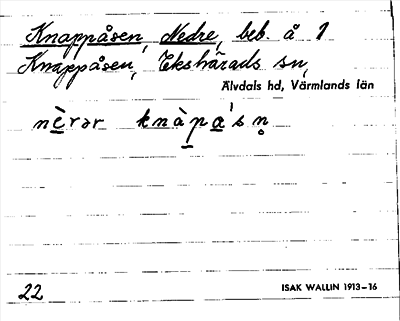 Knappåsen, Nedre, beb. å 1
Knappåsen, Ekshärads sn,
Älvdals hd, Värmlands län
nèrər knàpa'sn̥
22
ISAK WALLIN 1913–16